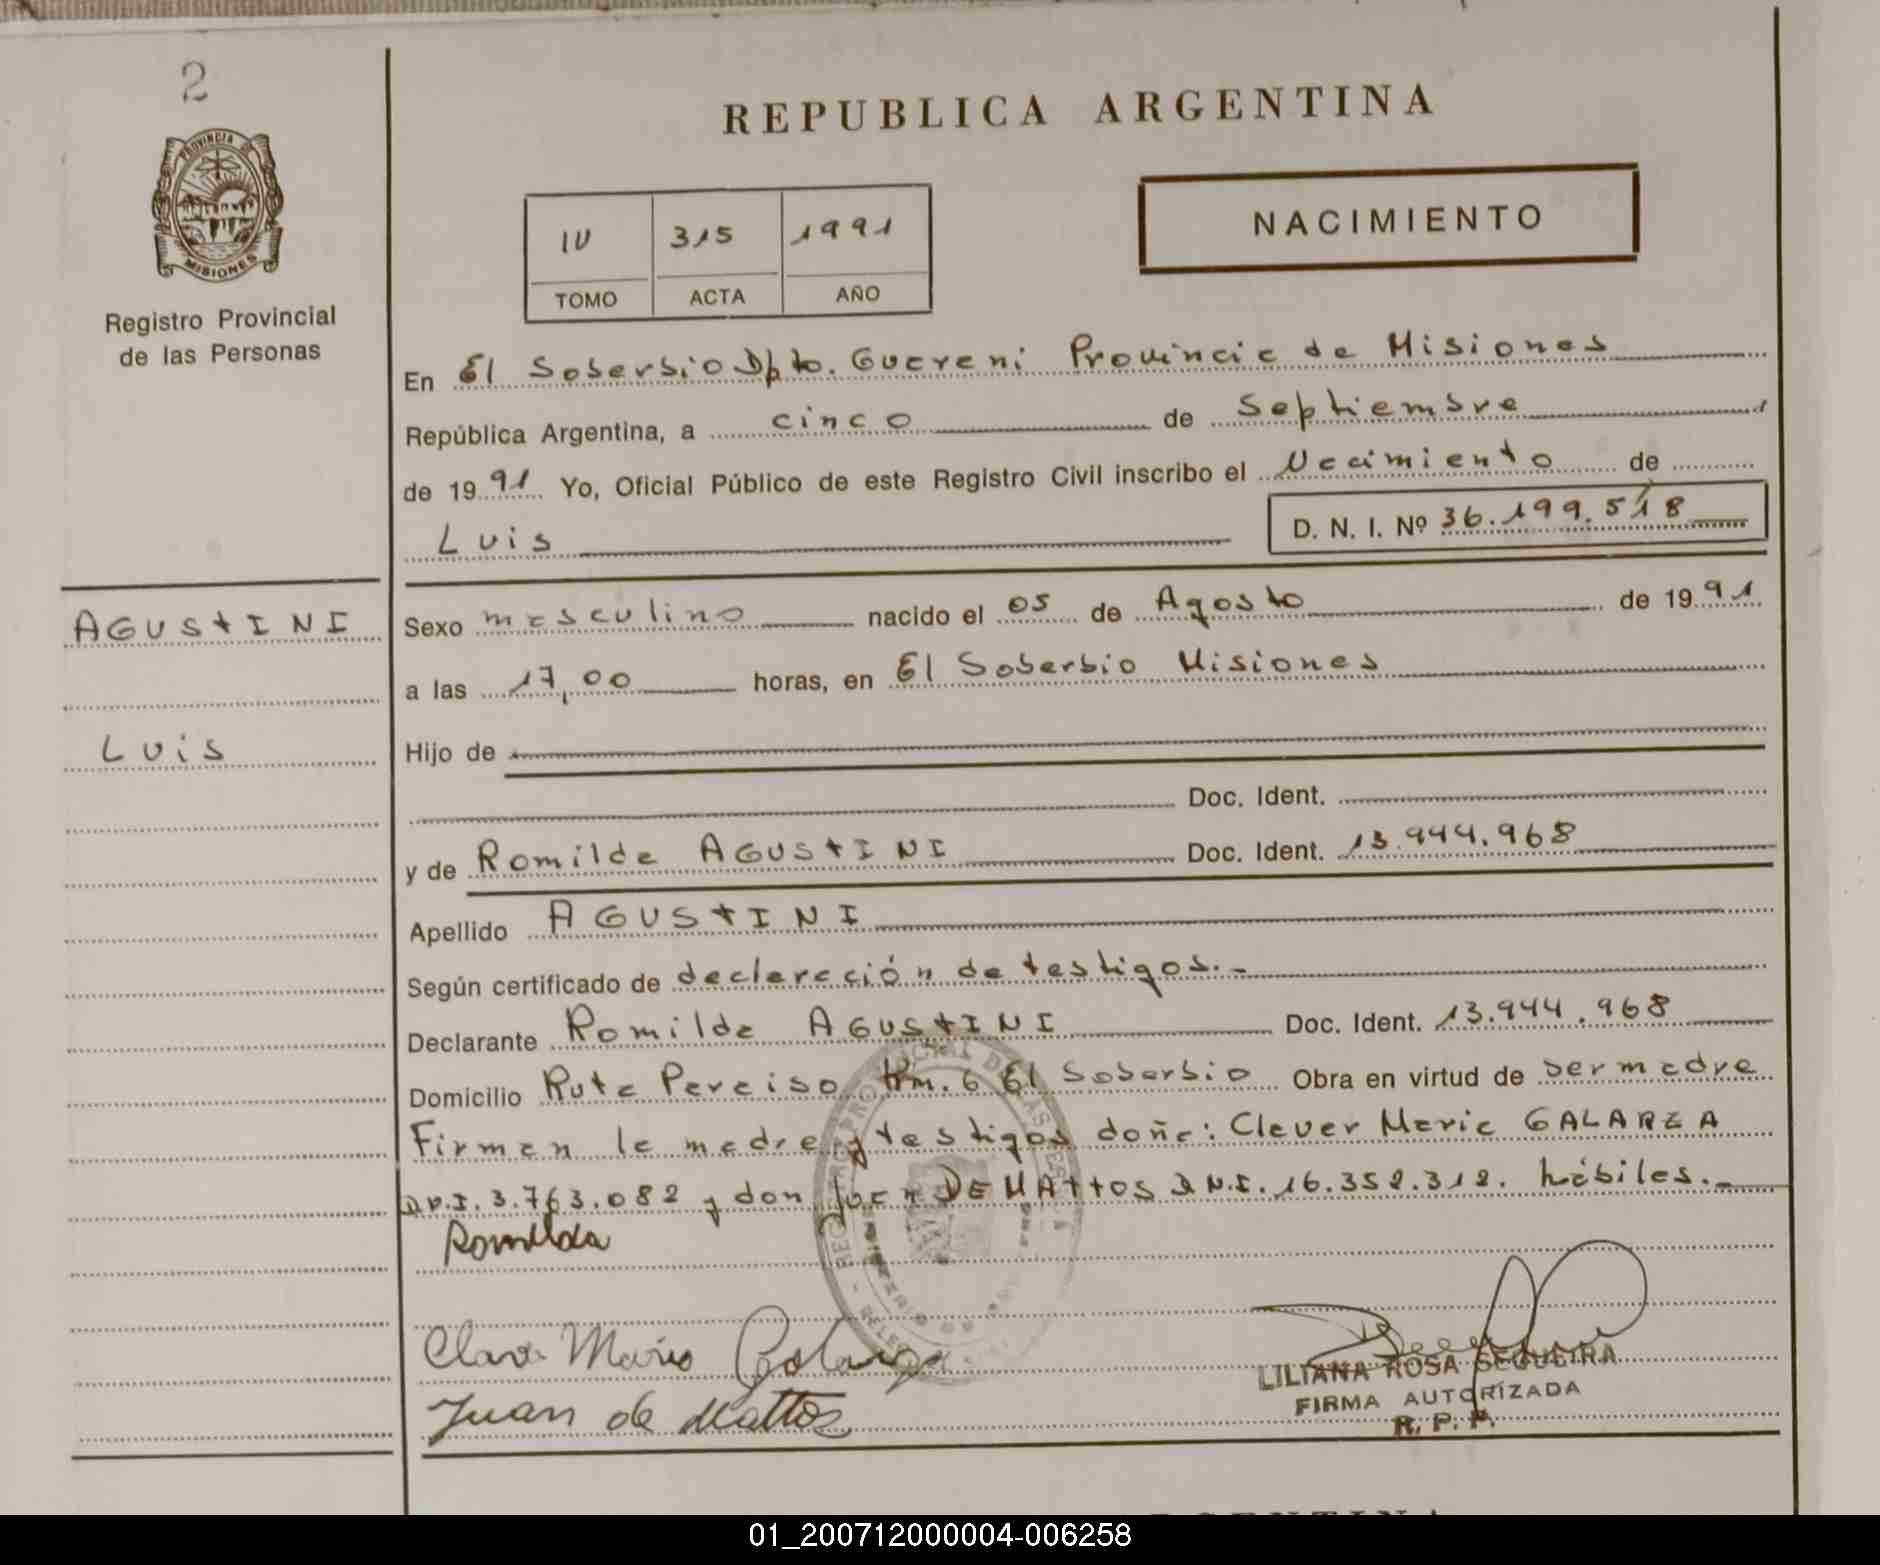 2
PROVINCIA DE
MISIONES
Registro Provincial
de las Personas
REPUBLICA ARGENTINA
IV 315 1991
TOMO ACTA AÑO
NACIMIENTO
En El Soberbio Dpto. Guaraní Provincia de Misiones
República Argentina, a cinco de Septiembre
de 1991 Yo, Oficial Público de este Registro Civil inscribo el Nacimiento de
Luis D. N. I. Nº 36.199.518
AGUSTINI
Luis
Sexo masculino nacido el 05 de Agosto de 1991
a las 17,00 horas, en El Soberbio Misiones
Hijo de
Doc. Ident.
y de Romilda AGUSTINI Doc. Ident. 13.944.968
Apellido AGUSTINI
Según certificado de declaración de testigos.-
Declarante Romilda AGUSTINI Doc. Ident. 13.944.968
Domicilio Ruta Peraiso Km. 6 El Soberbio Obra en virtud de ser madre
Firman la madre y testigos doña: Clever Maria GALARZA
D.N.I. 3.763.082 y don Juan DEMATTOS D.N.I. 16.352.312. hábiles.-
Romilda
Maria Galarza
Juan de Mattos
LILIANA ROSA SEQUEIRA
FIRMA AUTORIZADA
R. P. P.
01_200712000004-006258